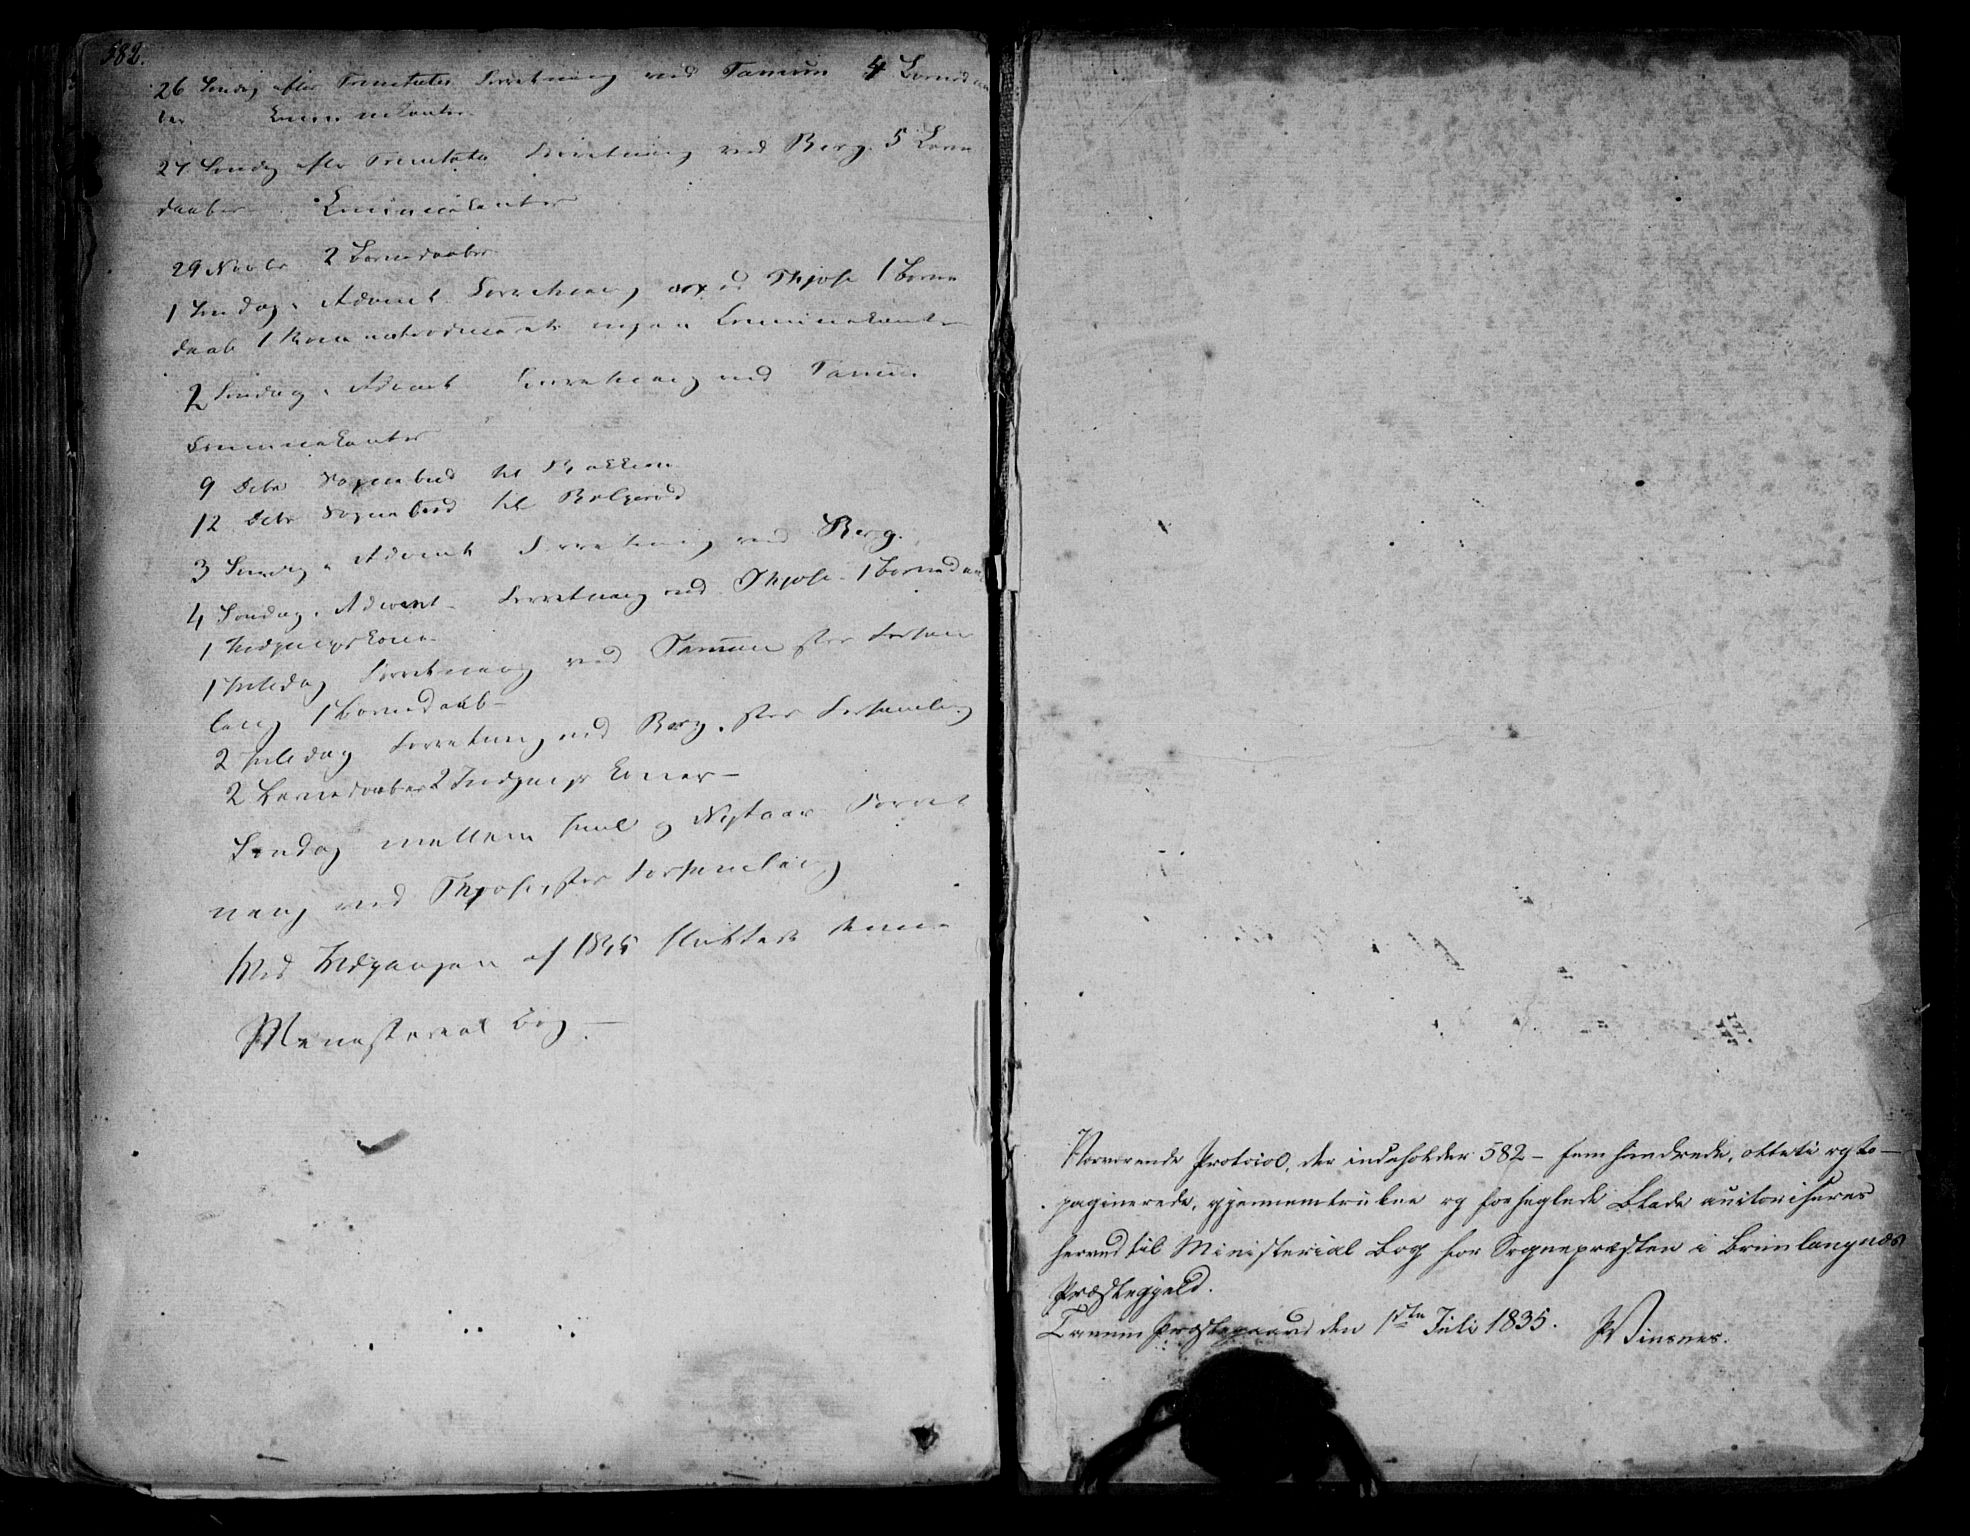 582.
26 Søndag efter Trinitatis Forretning ved Tanum 4 Barneda
ber Communicanter
27 Søndag efter Trinitatis Forretning ved Berg. 5 Barne
daaber Communicanter
29 Novbr 2 Barnedaaber
1 Søndag i Advent Forretning ved Thjose 1 Barne
daab 1 ingen Communicanter
2 Søndag i Advent Forretning ved Tanum
Communicanter
9 Debr Sognebud til Bakken
12 Debr Sognebud til
3 Søndag i Advent Forretning ved Berg.
4 Søndag i Advent Forretning ved Thjose 1 Barnedaab
1 Indgangskone
1 Juledag Forretning ved Tanum stor Forsam
ling 1 Barnedaab
2 Juledag Forretning ved Berg. stor Forsamling
2 Barnedaaber 2 Indgangskoner
Søndag mellem Juul og Nytaar Forret
ning ved Thjose, stor Forsamling
Med Indgangen af 1846 sluttes denne
Ministerial Bog
Nærværende Protocol, der indeholder 582 - fem hundrede, otteti og to -
paginerede, gjennemtrukne og forseglede Blade auctoriseres
herved til Ministerial Bog for Sognepræsten i Brunlaugnæs
Præstegjeld.
Tanum Præstegaard den 1ste Juli 1835. Winsnes.